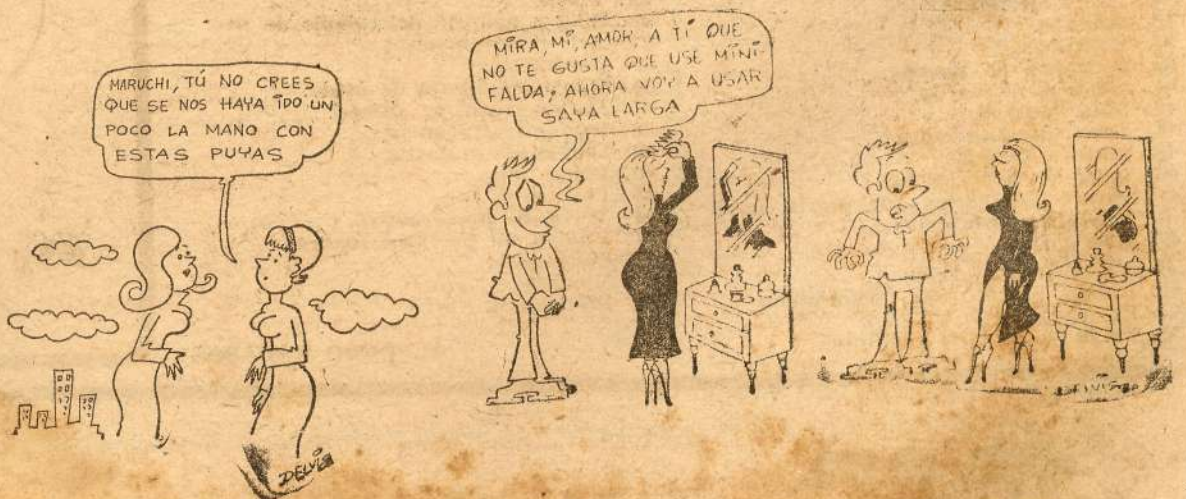 MARUCHI, TÚ NO CREES
QUE SE NOS HAYA IDO UN
POCO LA MANO CON
ESTAS PUYAS
MIRA, MI, AMOR, A TÍ QUE
NO TE GUSTA QUE USE MINI-
FALDA, AHORA VOY A USAR
SAYA LARGA
DELVIS